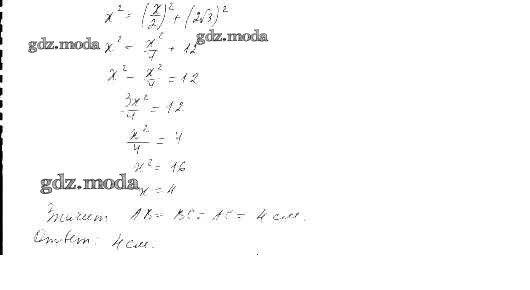 x² = (x/2)² + (2√3)²
gdz.moda x² = x²/4 + 12 gdz.moda
x² - x²/4 = 12
3x²/4 = 12
x²/4 = 4
x² = 16
gdz.moda x = 4
AB = BC = AC = 4 см.
Ответ: 4 см.